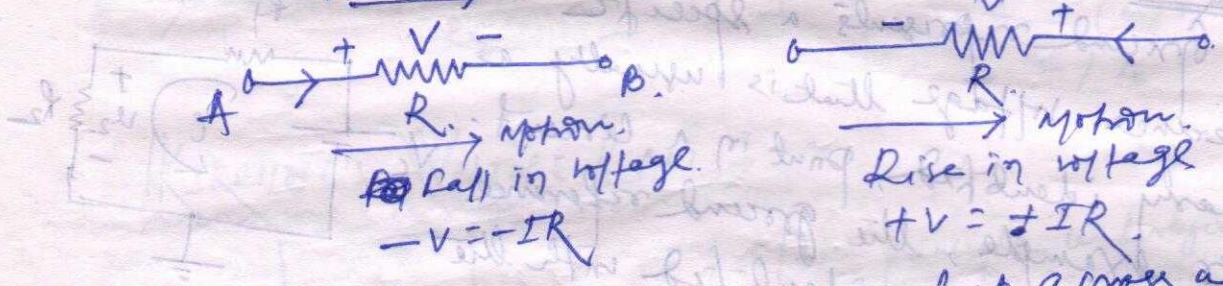 + V -
A R. B.
motion.
Fall in voltage.
-V = -IR
- V +
R.
motion.
Rise in voltage
+V = + IR.